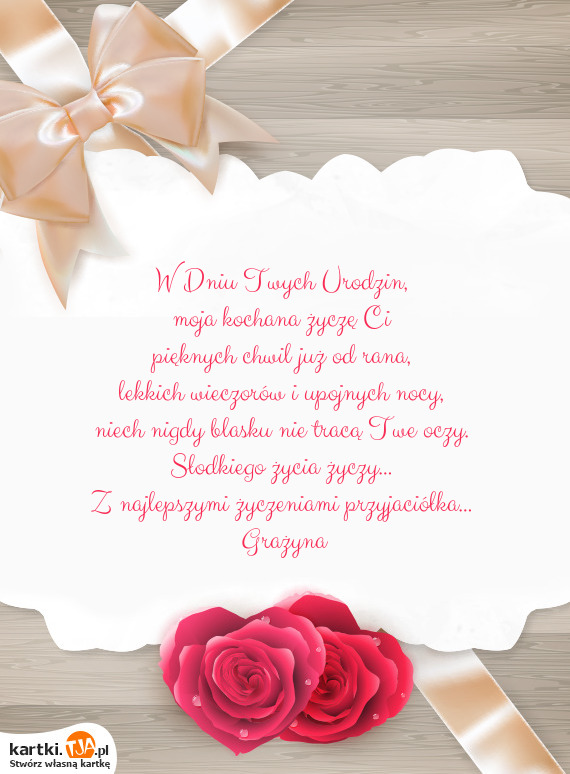 W Dniu Twych Urodzin,
moja kochana życzę Ci
pięknych chwil już od rana,
lekkich wieczorów i upojnych nocy,
niech nigdy blasku nie tracą Twe oczy.
Słodkiego życia życzy...
Z najlepszymi życzeniami przyjaciółka...
Grażyna
kartki.TJA.pl
Stwórz własną kartkę